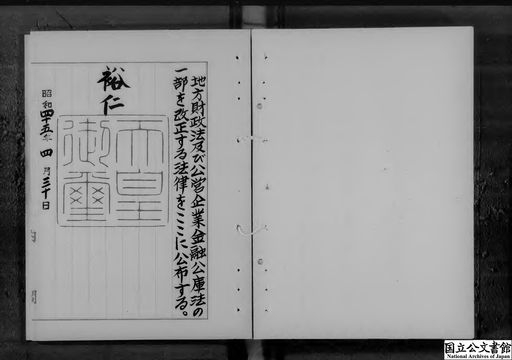 地方財政法及び公営企業金融公庫法の
一部を改正する法律をここに公布する。
裕仁
天皇
御璽
昭和四十五年四月三十日
国立公文書館
National Archives of Japan